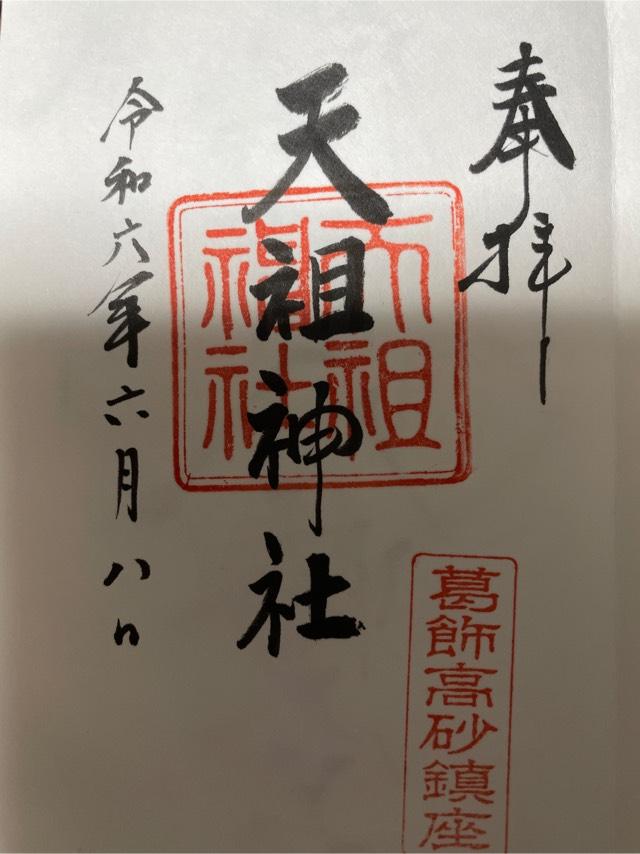 奉拝
天祖神社
天祖
神社
令和六年六月八日
葛飾高砂鎮座